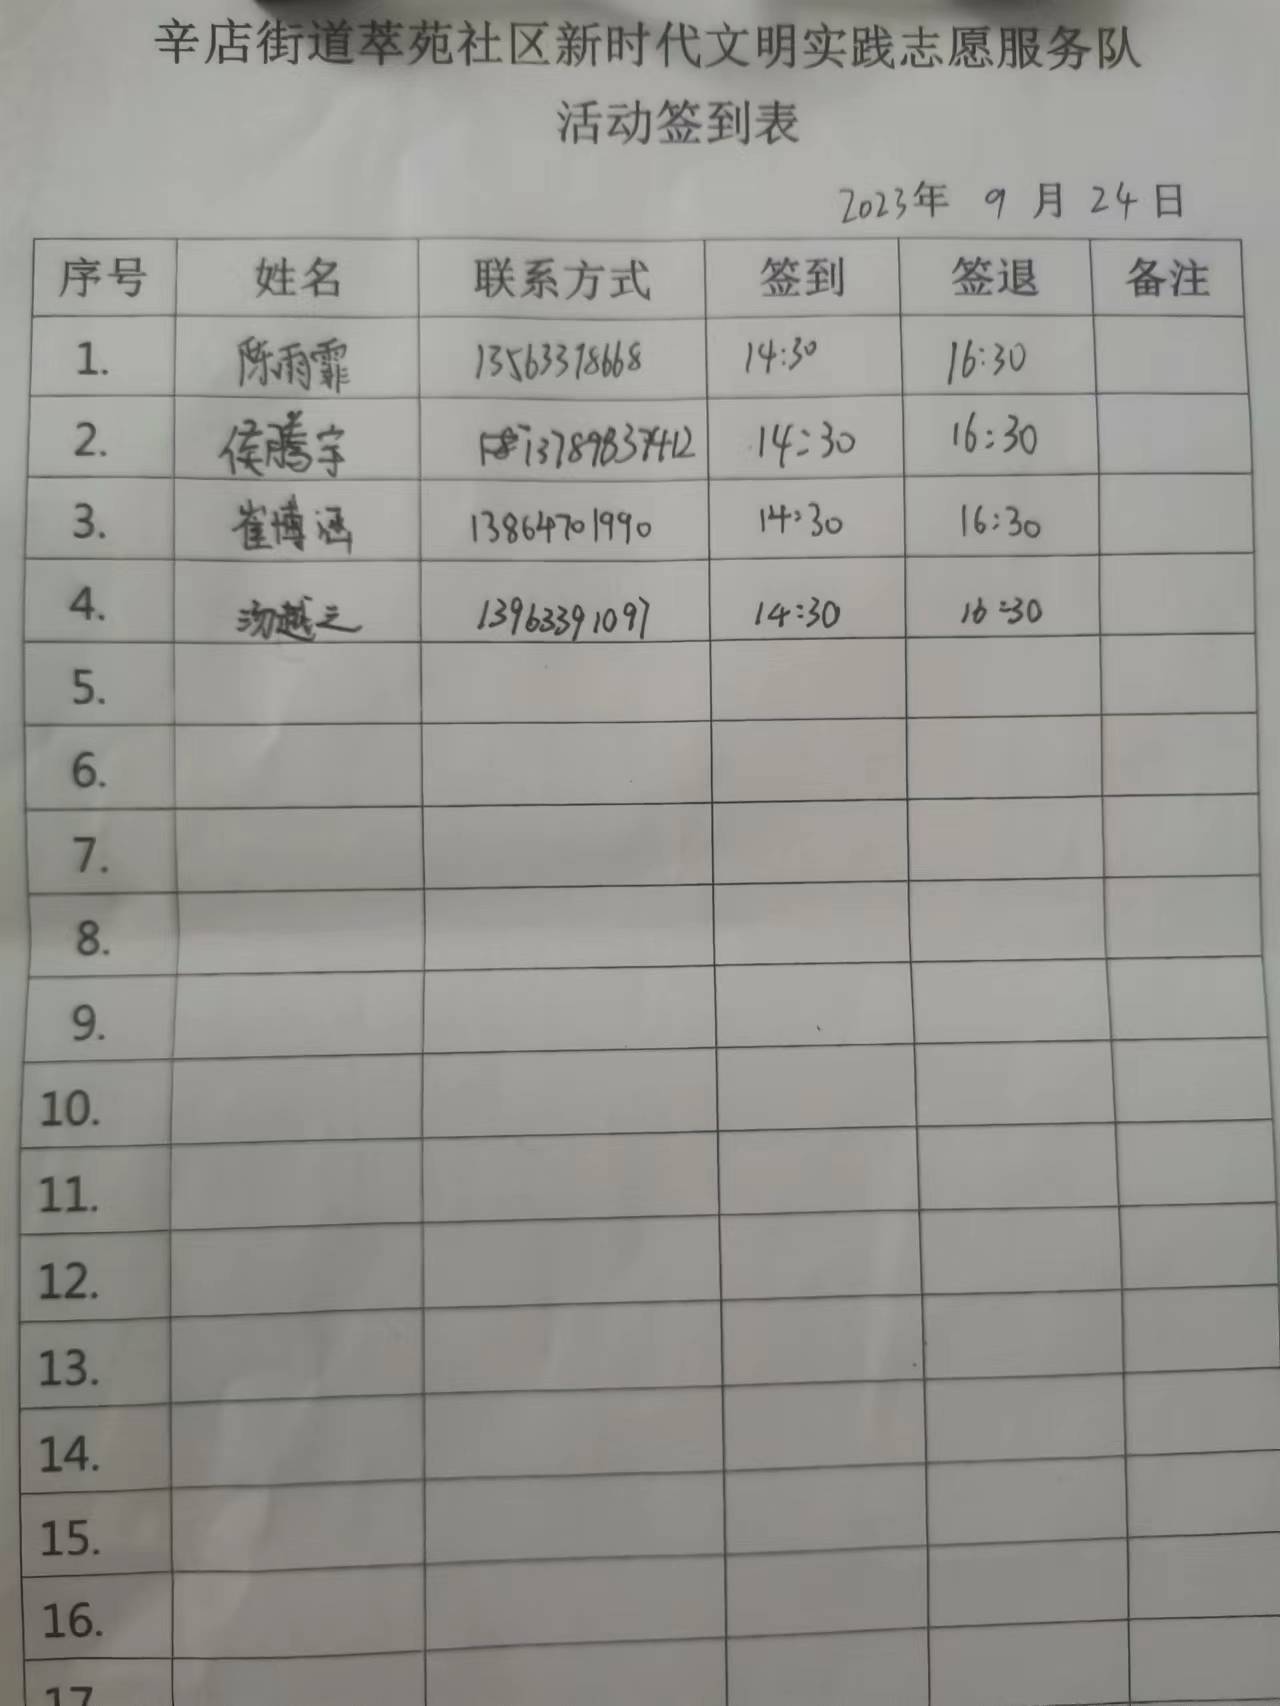 辛店街道萃苑社区新时代文明实践志愿服务队
活动签到表
2023年 9 月 24 日
序号 姓名 联系方式 签到 签退 备注
1. 陈雨霏 13563378668 14:30 16:30
2. 侯腾宇 13789837412 14:30 16:30
3. 崔博涵 13864701990 14:30 16:30
4. 汤越之 13963391097 14:30 16:30
5.
6.
7.
8.
9.
10.
11.
12.
13.
14.
15.
16.
17